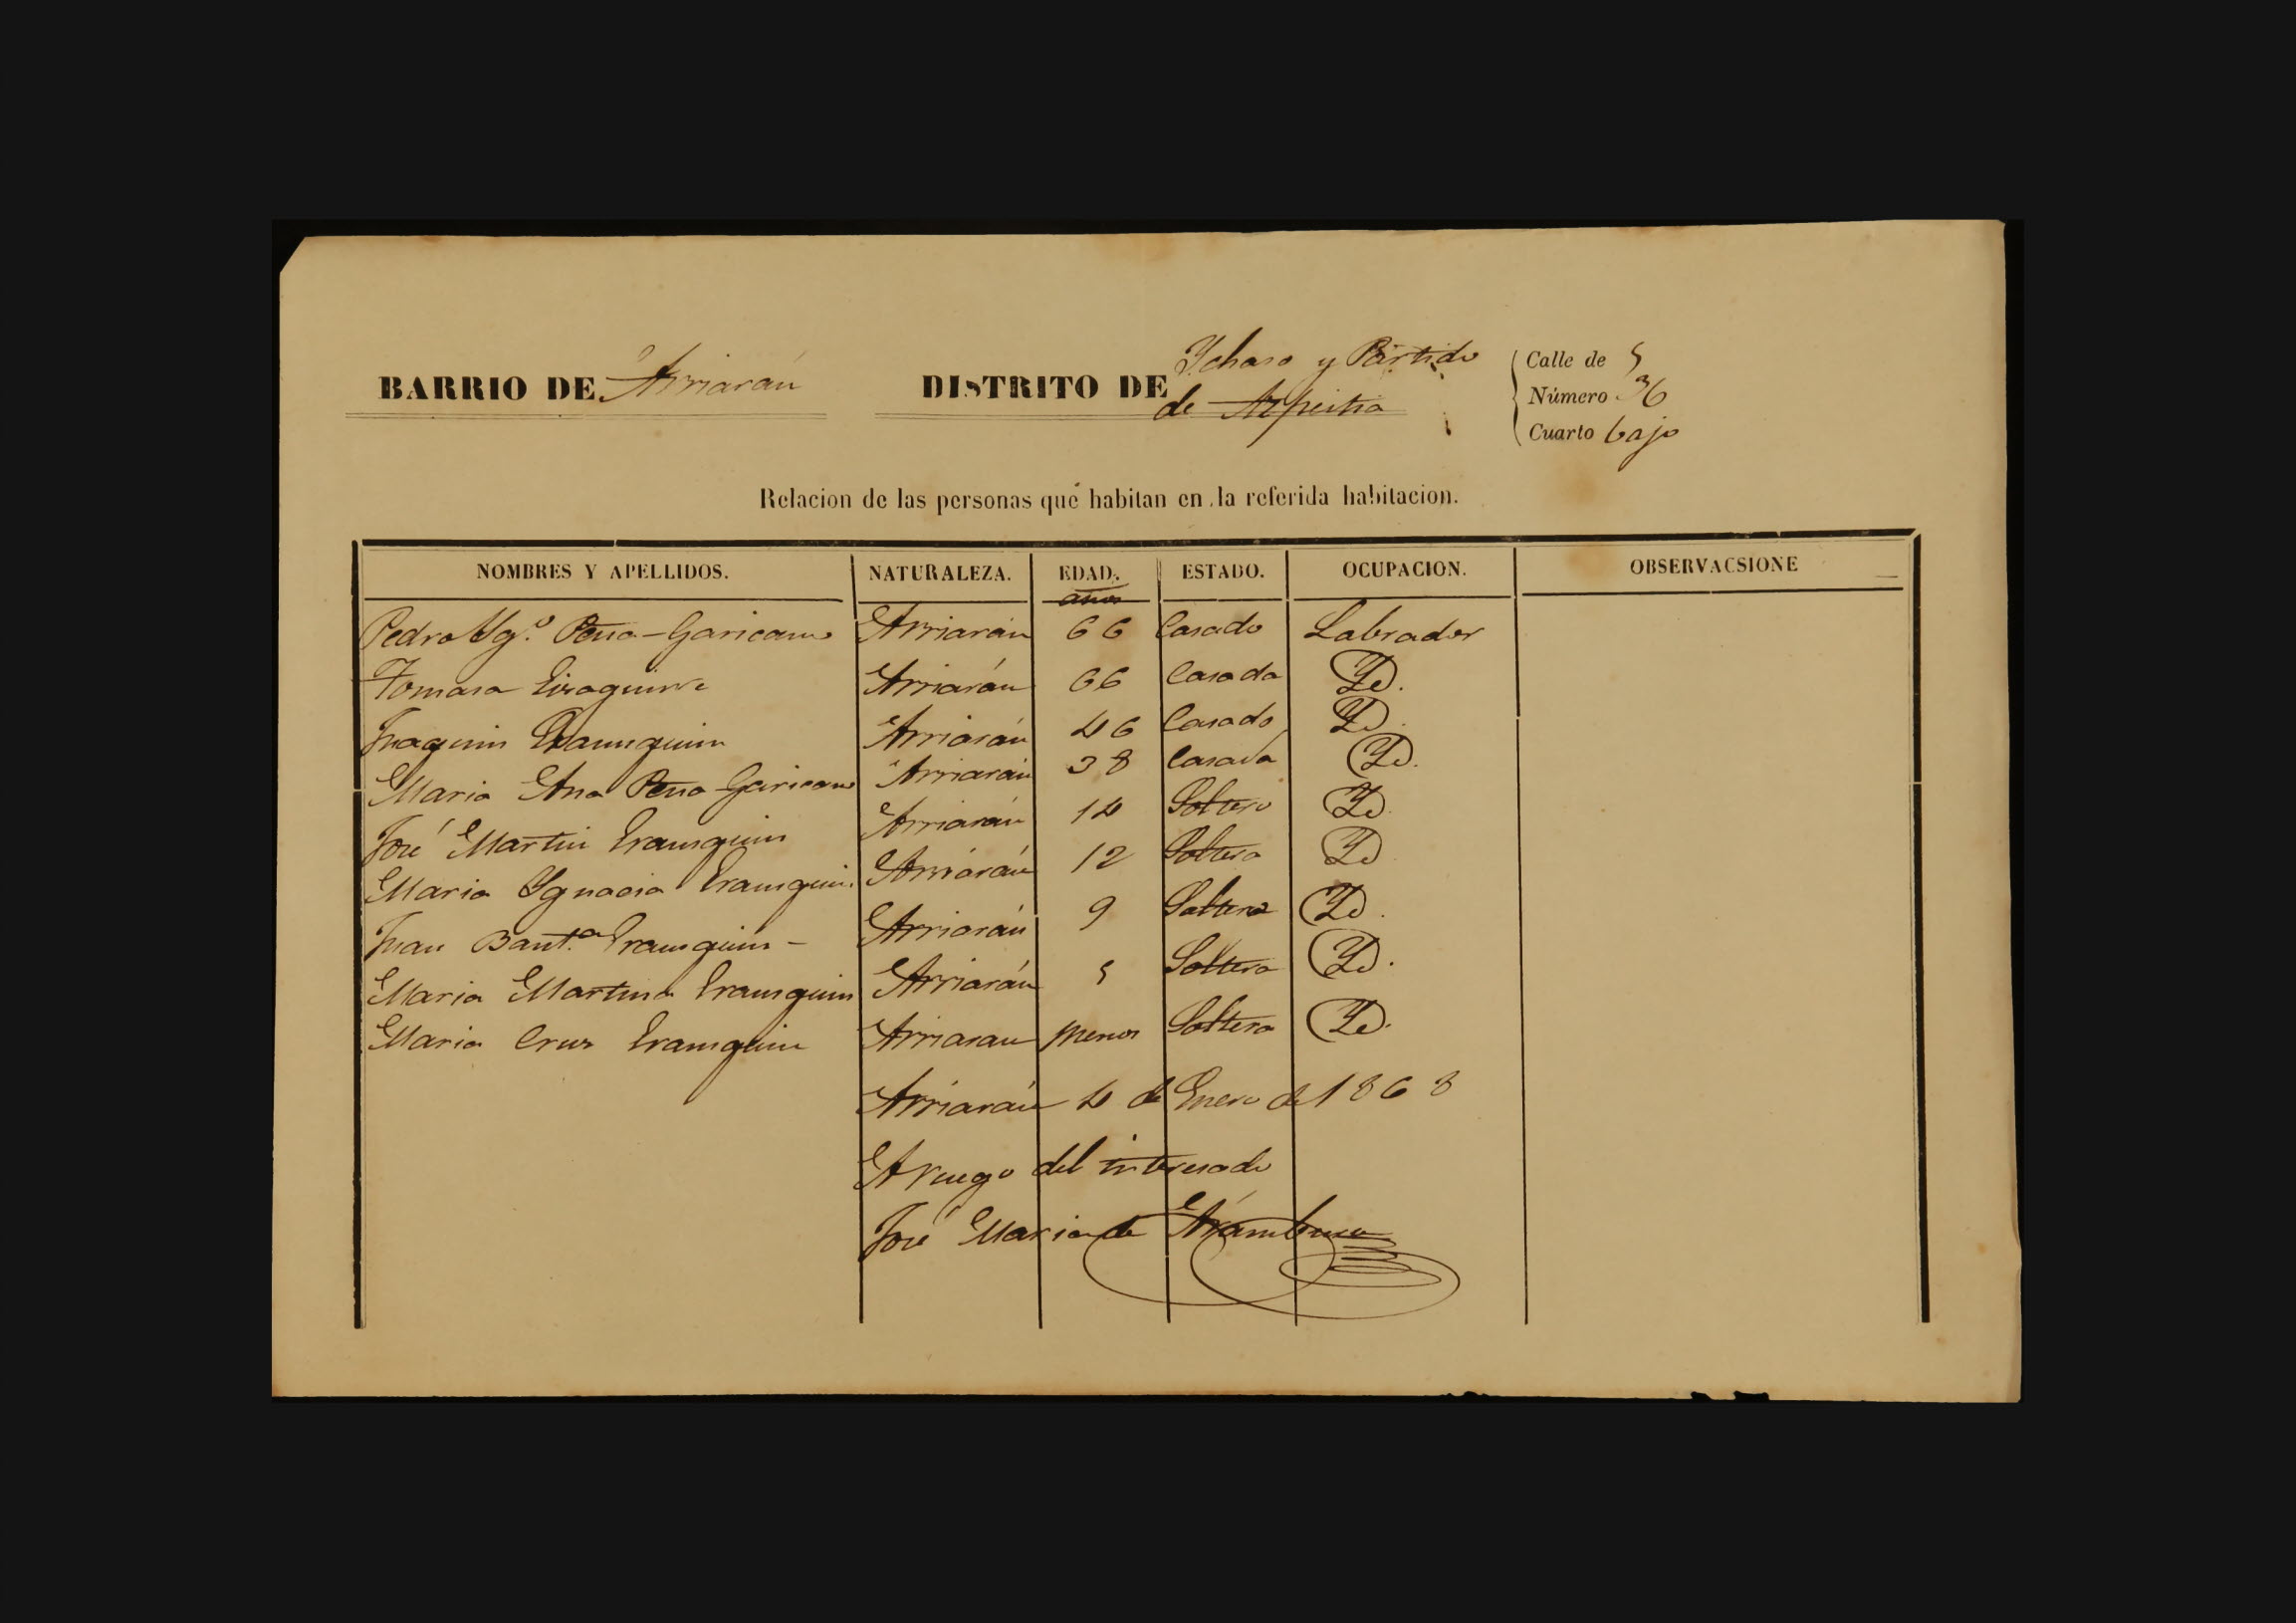 BARRIO DE Arriarán
DISTRITO DE Ychaso y Partido
de Azpeitia
Calle de 5
Número 36
Cuarto bajo
Relacion de las personas que habitan en la referida habitacion.
NOMBRES Y APELLIDOS. NATURALEZA. EDAD. ESTADO. OCUPACION. OBSERVACSIONE
años
Pedro Yg.º Pena-Garicano Arriarán 66 Casado Labrador
Tomasa Eizaguirre Arriarán 66 Casada Yd.
Joaquin Erausquin Arriarán 46 Casado Yd.
Maria Ana Pena Garicano Arriarán 38 Casada Yd.
José Martin Erausquin Arriarán 14 Soltero Yd
Maria Ygnacia Erausquin Arriarán 12 Soltera Yd
Juan Baut.ª Erausquin - Arriarán 9 Soltero Yd.
Maria Martina Erausquin Arriarán 5 Soltera Yd.
Maria Cruz Erausquin Arriaran menor Soltera Yd.
Arriarán 4 de Enero de 1868
A ruego del interesado
José Maria de Aramburu